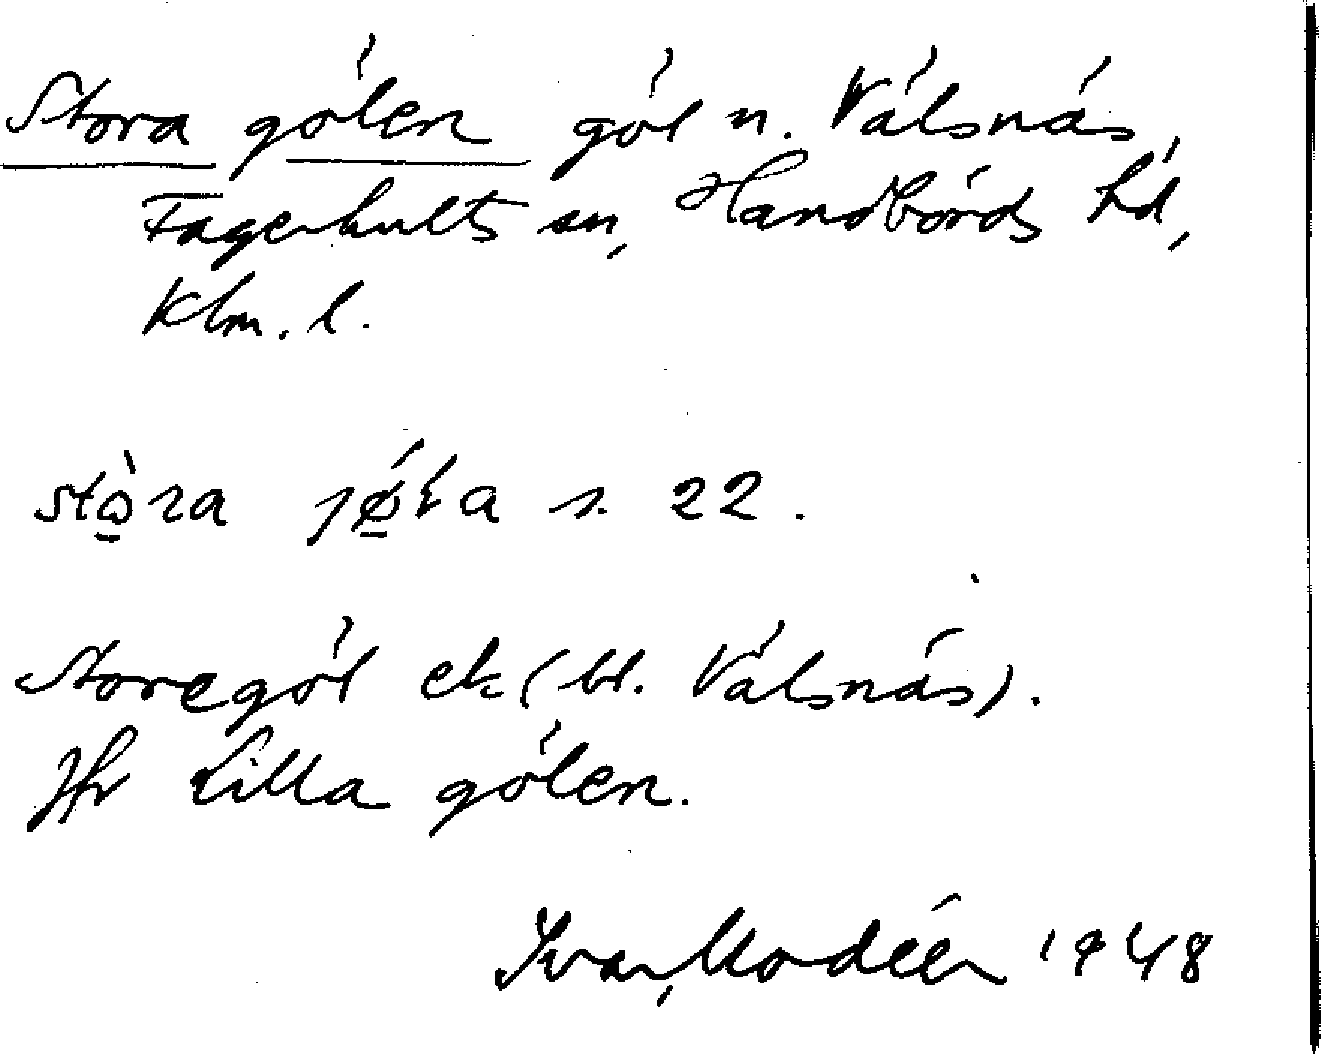 Stora gölen göl n. Välsnäs,
Fagerhults sn, Handbörds hd,
Klm. l.
sto̱̍ra jǿ̱ła s. 22.
Storegöl ek (bl. Välsnäs).
Jfr Lilla gölen.
Ivar Modéer 1948